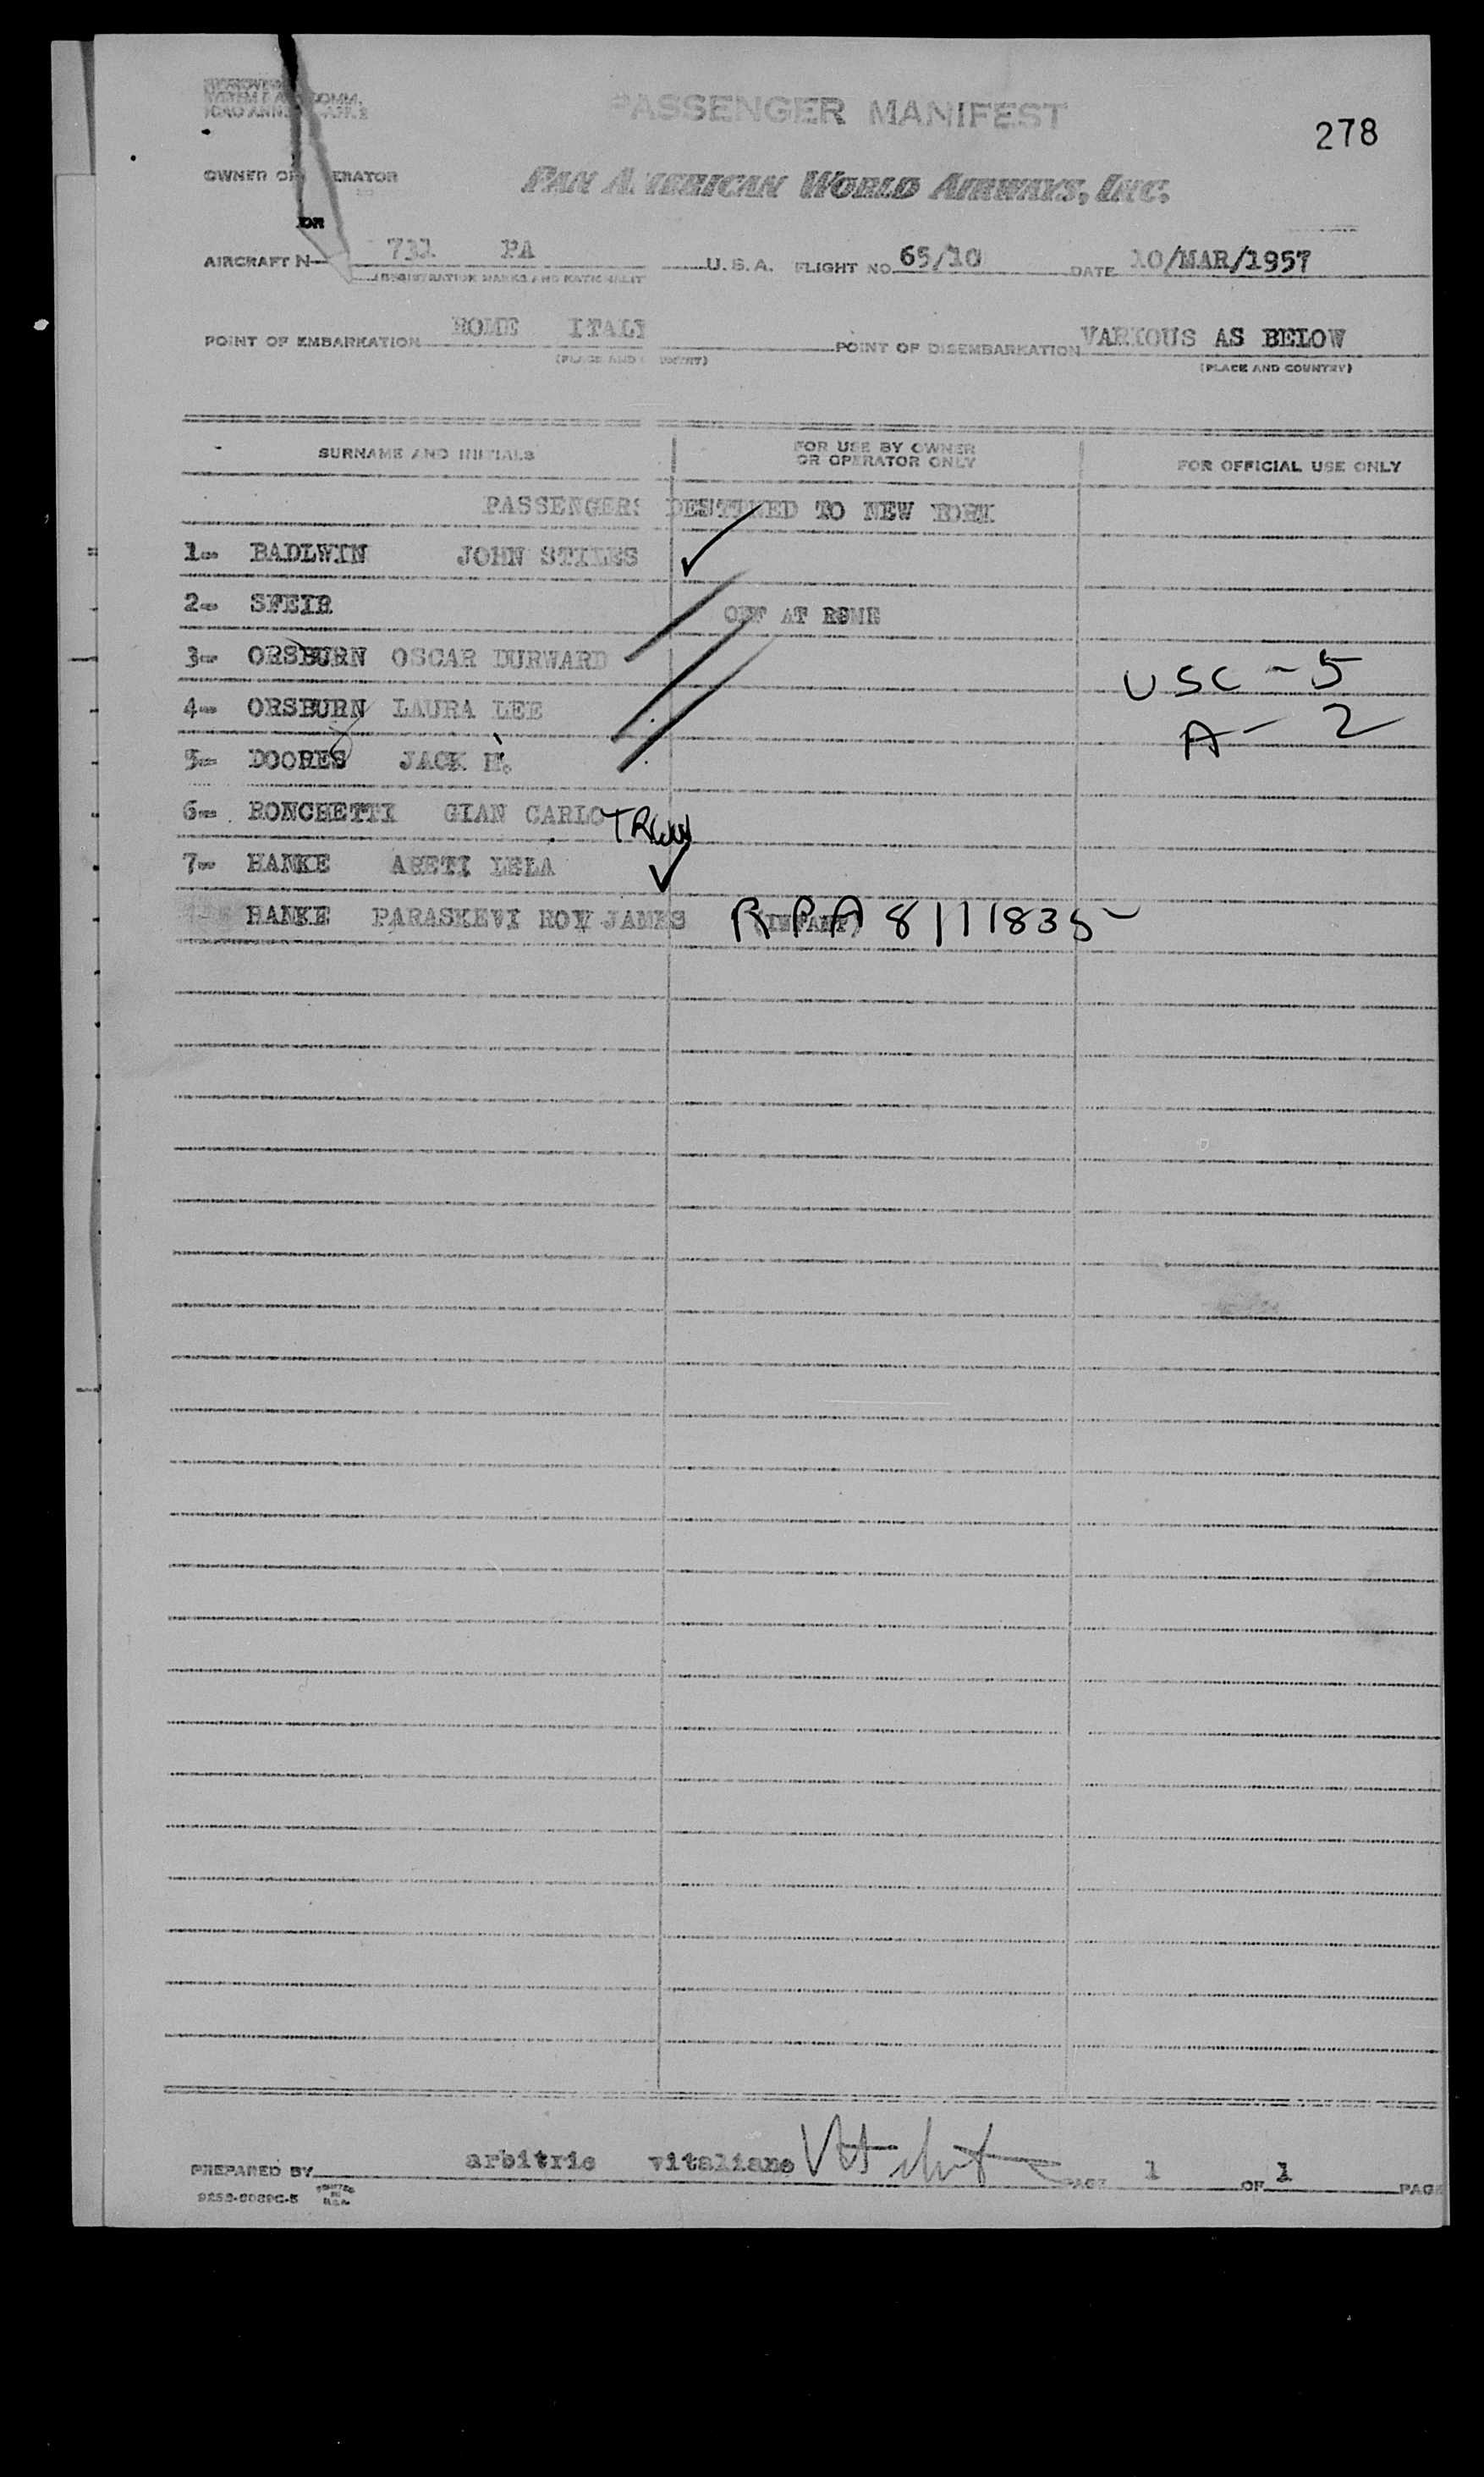 PASSENGER MANIFEST
278
OWNER OR OPERATOR
PAN AMERICAN WORLD AIRWAYS, INC.
AIRCRAFT N 731 PA U.S.A. FLIGHT NO. 65/10 DATE 10/MAR/1957
(REGISTRATION MARKS AND NATIONALITY
POINT OF EMBARKATION ROME ITALY POINT OF DISEMBARKATION VARIOUS AS BELOW
(PLACE AND COUNTRY) (PLACE AND COUNTRY)
SURNAME AND INITIALS FOR USE BY OWNER OR OPERATOR ONLY FOR OFFICIAL USE ONLY
PASSENGERS DESTINED TO NEW YORK
1- BADLWIN JOHN STILES
2- SFEIR OFF AT ROME
3- ORSBURN OSCAR DURWARD USC - 5
4- ORSBURN LAURA LEE A - 2
5- DOORES JACK H.
6- RONCHETTI GIAN CARLO
7- HANKE ARETI LELA
HANKE PARASKEVI ROY JAMES (INFANT) RPA 8111835
PREPARED BY arbitrio vitaliano PAGE 1 OF 1 PAGE